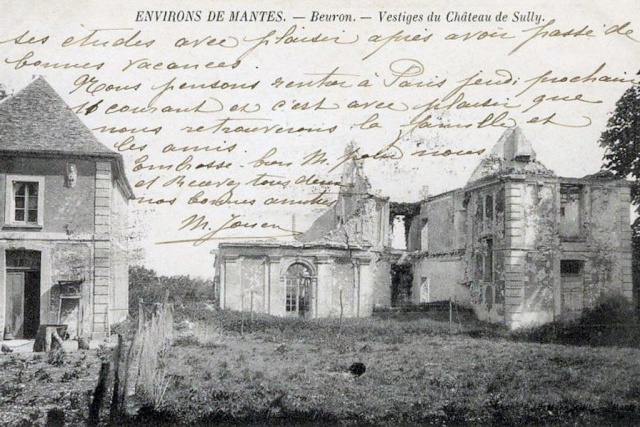 ENVIRONS DE MANTES. — Beuron. — Vestiges du Château de Sully.
ses études avec plaisir après avoir passé de
bonnes vacances.
Nous pensons rentrer à Paris jeudi prochain
courant et c'est avec plaisir que
nous retrouverons la famille et
les amis.
Embrasse bien M. pour nous
et recevez tous deux
nos bonnes amitiés
M.